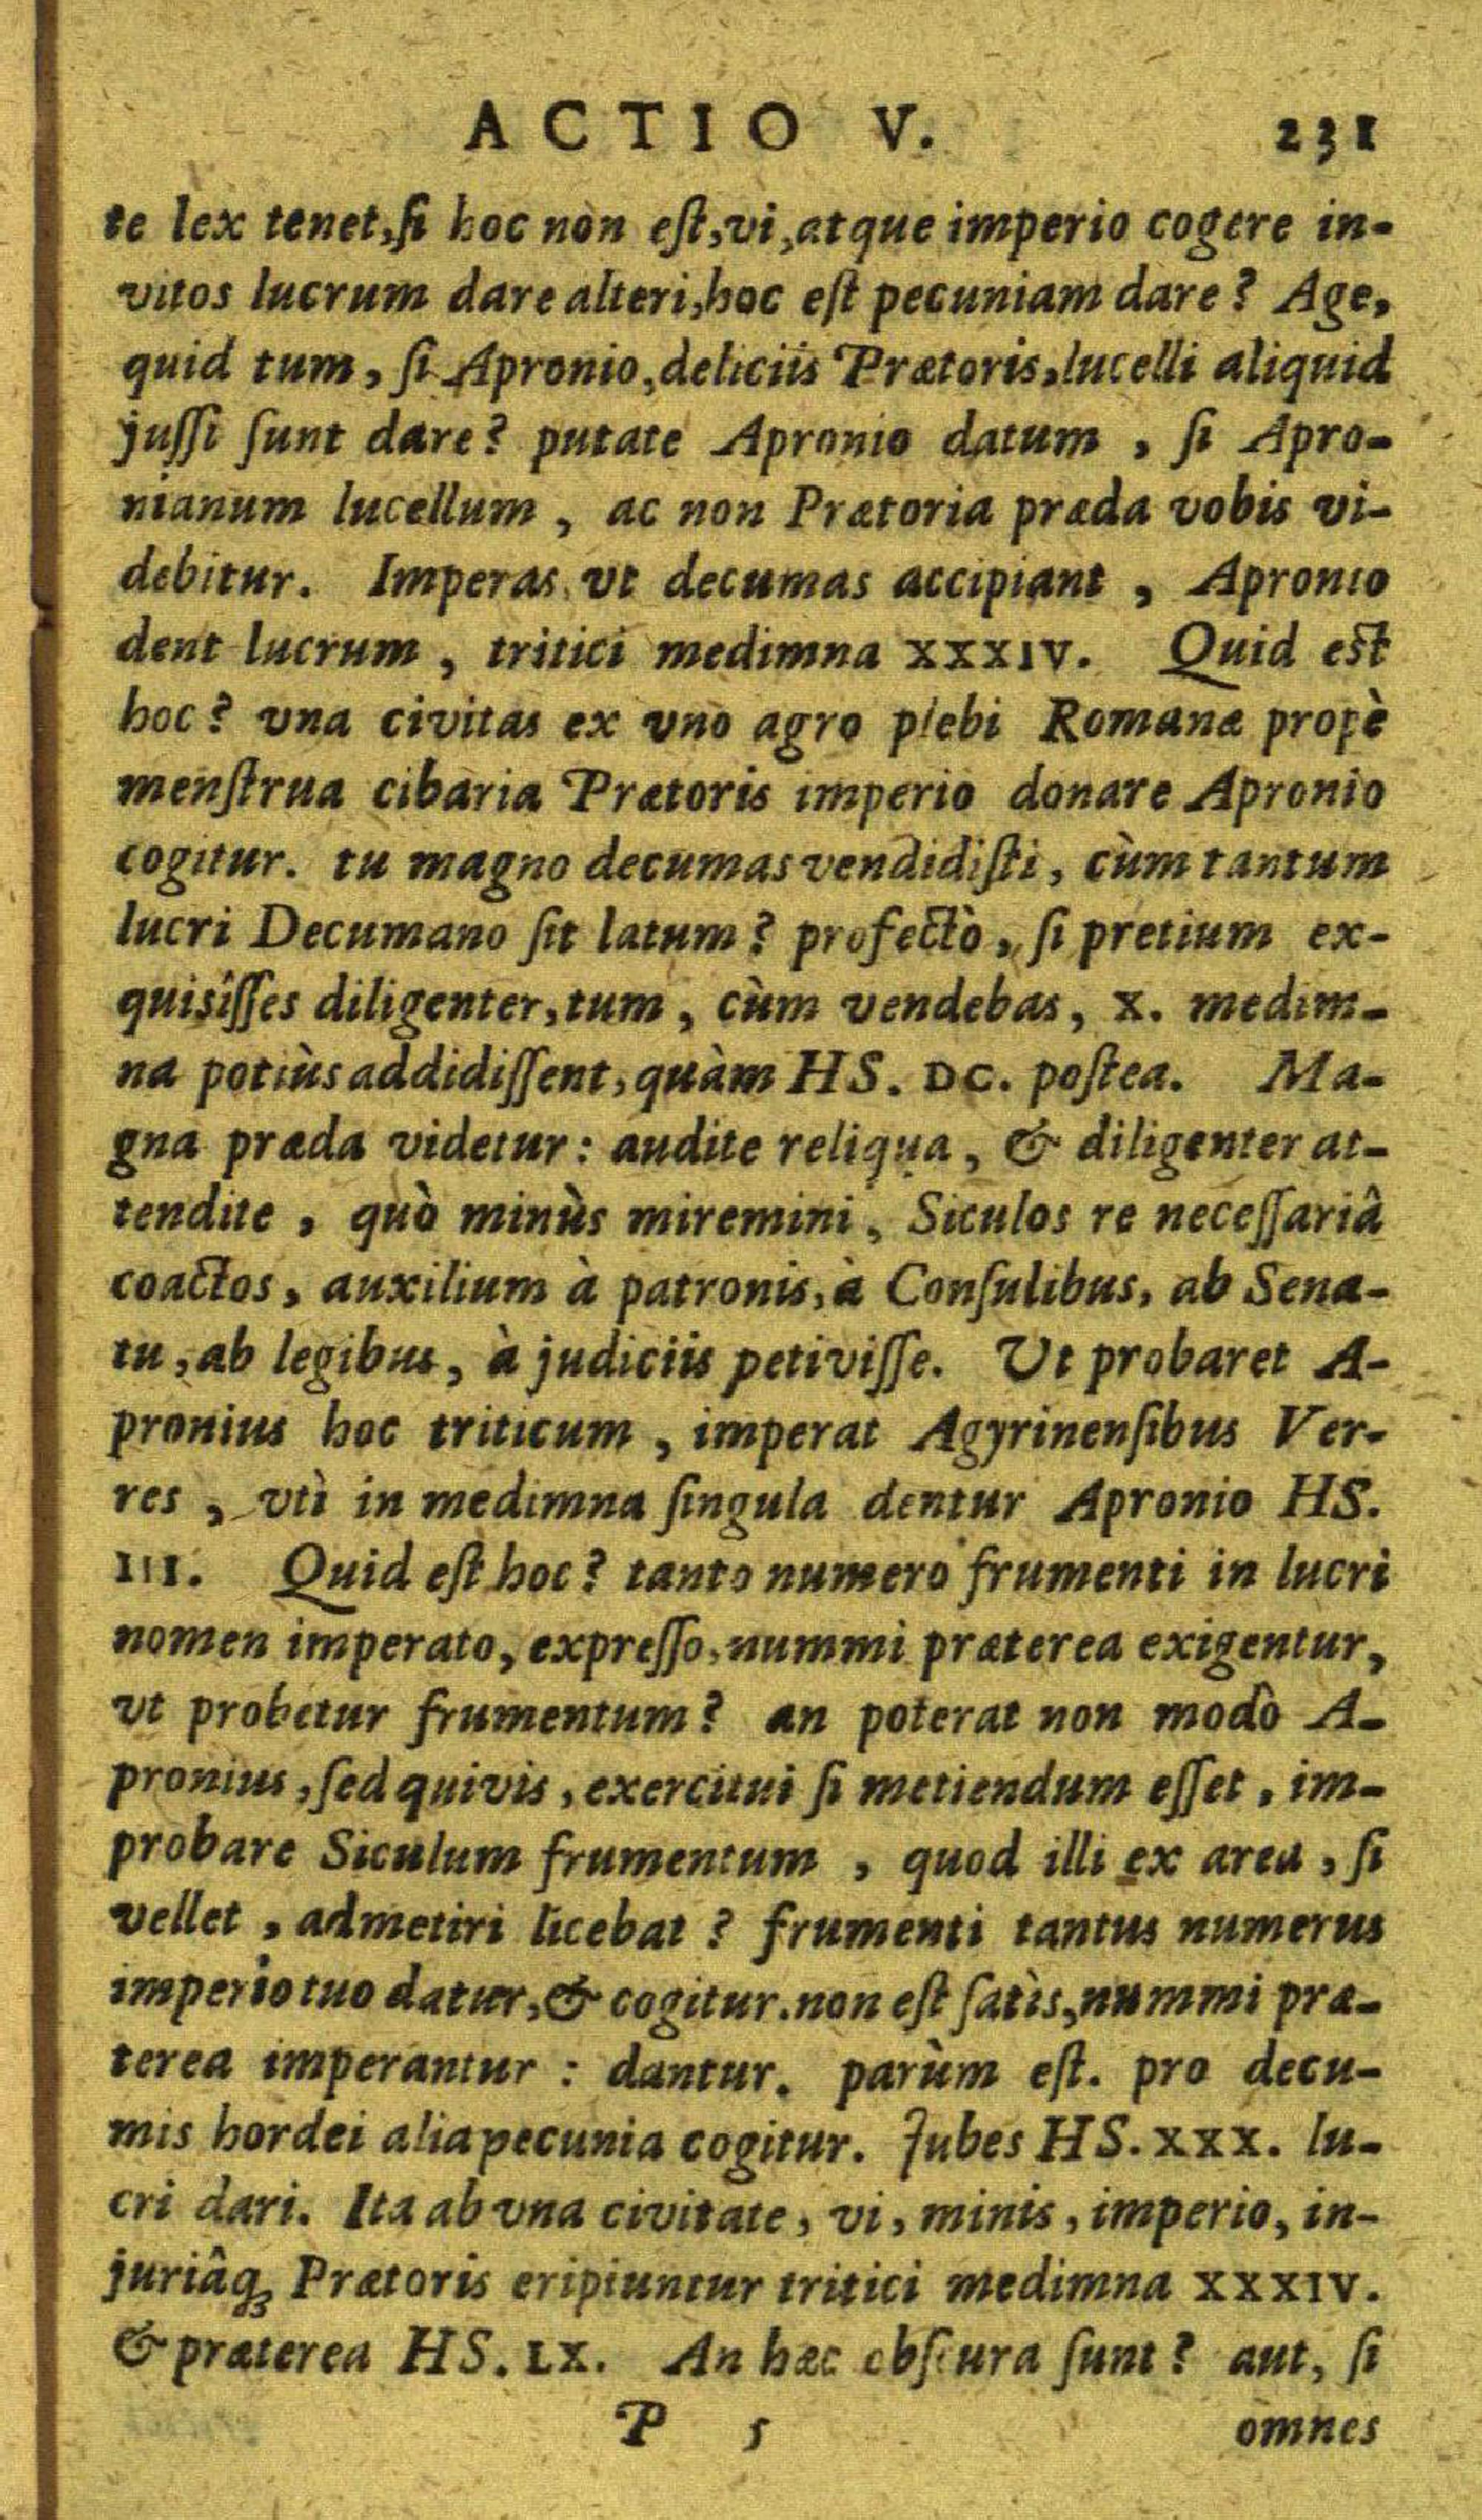 ACTIO V. 231
te lex tenet, ſi hoc non eſt, vi, atque imperio cogere in-
vitos lucrum dare alteri, hoc eſt pecuniam dare? Age,
quid tum, ſi Apronio, deliciis Prætoris, lucelli aliquid
juſſi ſunt dare? putate Apronio datum, ſi Apro-
nianum lucellum, ac non Prætoria præda vobis vi-
debitur. Imperas, vt decumas accipiant, Apronio
dent lucrum, tritici medimna XXXIV. Quid eſt
hoc? vna civitas ex vno agro plebi Romanæ propè
menſtrua cibaria Prætoris imperio donare Apronio
cogitur. tu magno decumas vendidiſti, cùm tantum
lucri Decumano ſit latum? profectò, ſi pretium ex-
quisîſſes diligenter, tum, cùm vendebas, X. medim-
na potiùs addidiſſent, quàm HS. DC. poſtea. Ma-
gna præda videtur: audite reliqua, & diligenter at-
tendite, quò minùs miremini, Siculos re neceſſariâ
coactos, auxilium à patronis, à Conſulibus, ab Sena-
tu, ab legibus, à judiciis petiviſſe. Ut probaret A-
pronius hoc triticum, imperat Agyrinenſibus Ver-
res, vtì in medimna ſingula dentur Apronio HS.
III. Quid eſt hoc? tanto numero frumenti in lucri
nomen imperato, expreſſo, nummi præterea exigentur,
vt probetur frumentum? an poterat non modò A-
pronius, ſed quivis, exercitui ſi metiendum eſſet, im-
probare Siculum frumentum, quod illi ex area, ſi
vellet, admetiri licebat? frumenti tantus numerus
imperio tuo datur, & cogitur. non eſt ſatìs, nummi præ-
terea imperantur: dantur. parùm eſt. pro decu-
mis hordei alia pecunia cogitur. Jubes HS. XXX. lu-
cri dari. Ita ab vna civitate, vi, minis, imperio, in-
juriâq́; Prætoris eripiuntur tritici medimna XXXIV.
& præterea HS. LX. An hæc obſcura ſunt? aut, ſi
P 5 omnes